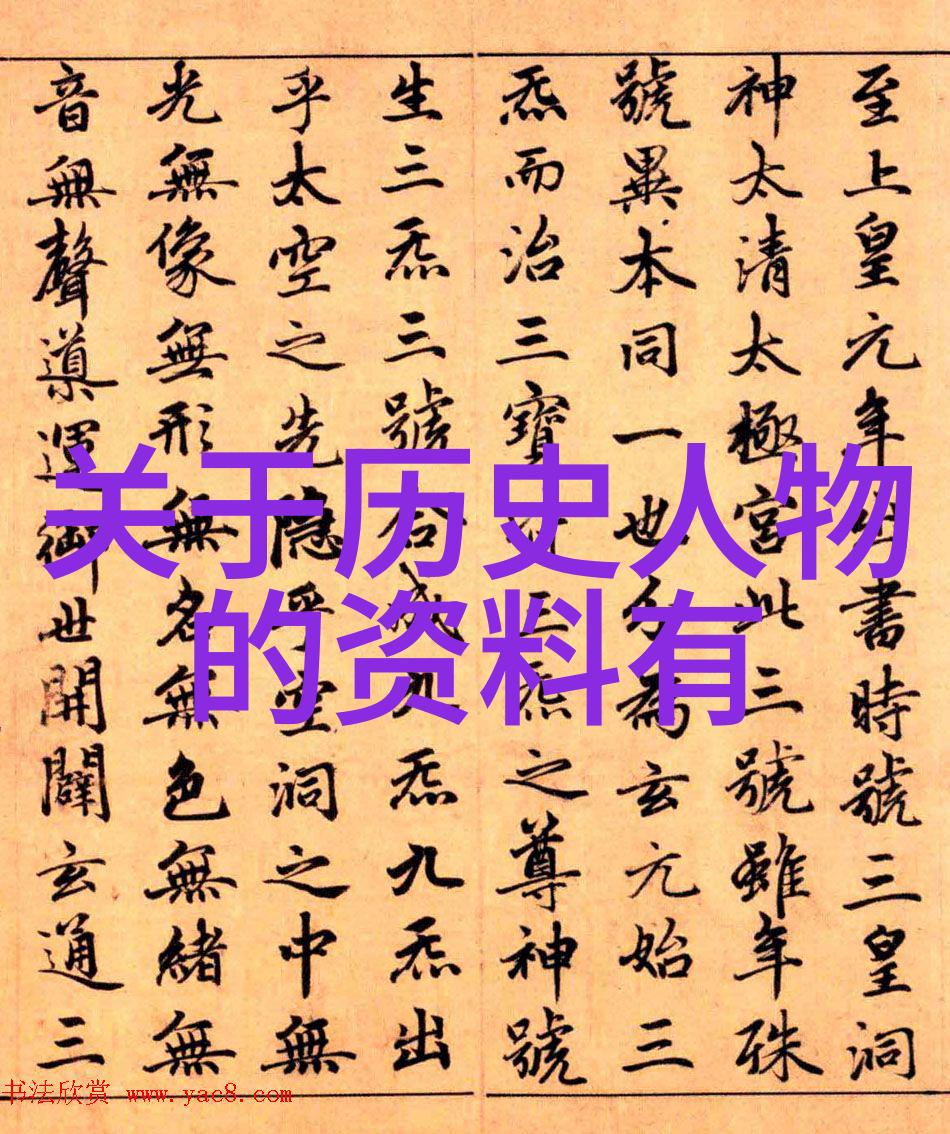 至上皇元年出書時號三皇洞
神太清太極宮此三號雖年殊
號異本同一也分為玄元始三
炁而治三寶皆三炁之尊神號
生三炁三號合成九炁九炁出
乎太空之先隱乎空洞之中無
光無像無形無名無色無緒無
音無聲導運御世開闢玄通三
关于历史人物
的资料有
书法欣赏 www.yac8.com